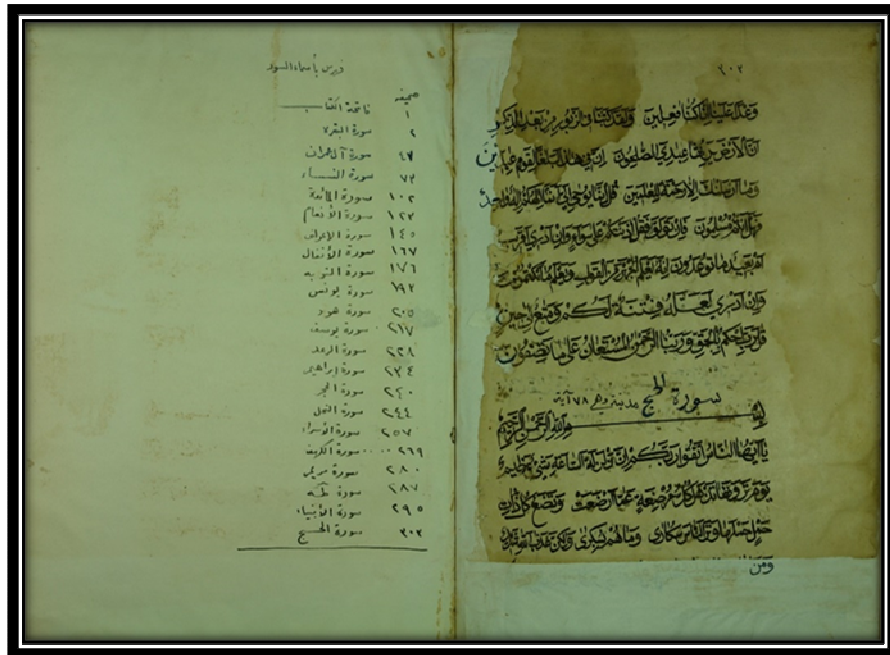 ٣٠٣
وعدا علينا انا كنا فعلين ولقد كتبنا في الزبور من بعد الذكر
ان الارض يرثها عبادي الصلحون ان في هذا لبلغا لقوم عابدين
وما ارسلنك الا رحمة للعلمين قل انما يوحى الي انما الهكم اله واحد
فهل انتم مسلمون فان تولوا فقل اذنتكم على سواء وان ادري اقريب
ام بعيد ما توعدون انه يعلم الجهر من القول ويعلم ما تكتمون
وان ادري لعله فتنة لكم ومتع الى حين
قل رب احكم بالحق وربنا الرحمن المستعان على ما تصفون
سورة الحج مدنية وهي ٧٨ آية
بسم الله الرحمن الرحيم
يا ايها الناس اتقوا ربكم ان زلزلة الساعة شيء عظيم
يوم ترونها تذهل كل مرضعة عما ارضعت وتضع كل ذات
حمل حملها وترى الناس سكارى وما هم بسكارى ولكن عذاب الله شديد
ومن
فهرس بأسماء السور
صحيفة
١ فاتحة الكتاب
٢ سورة البقرة
٤٧ سورة آل عمران
٧٣ سورة النساء
١٠٢ سورة المائدة
١٢٣ سورة الأنعام
١٤٥ سورة الاعراف
١٦٧ سورة الأنفال
١٧٦ سورة التوبه
١٩٣ سورة يونس
٢٠٥ سورة هود
٢١٧ سورة يوسف
٢٢٨ سورة الرعد
٢٣٤ سورة إبراهيم
٢٤٠ سورة الحجر
٢٤٤ سورة النحل
٢٥٣ سورة الأسراء
٢٦٩ سورة الكهف
٢٨٠ سورة مريم
٢٨٧ سورة طه
٢٩٥ سورة الأنبياء
٣٠٣ سورة الحج